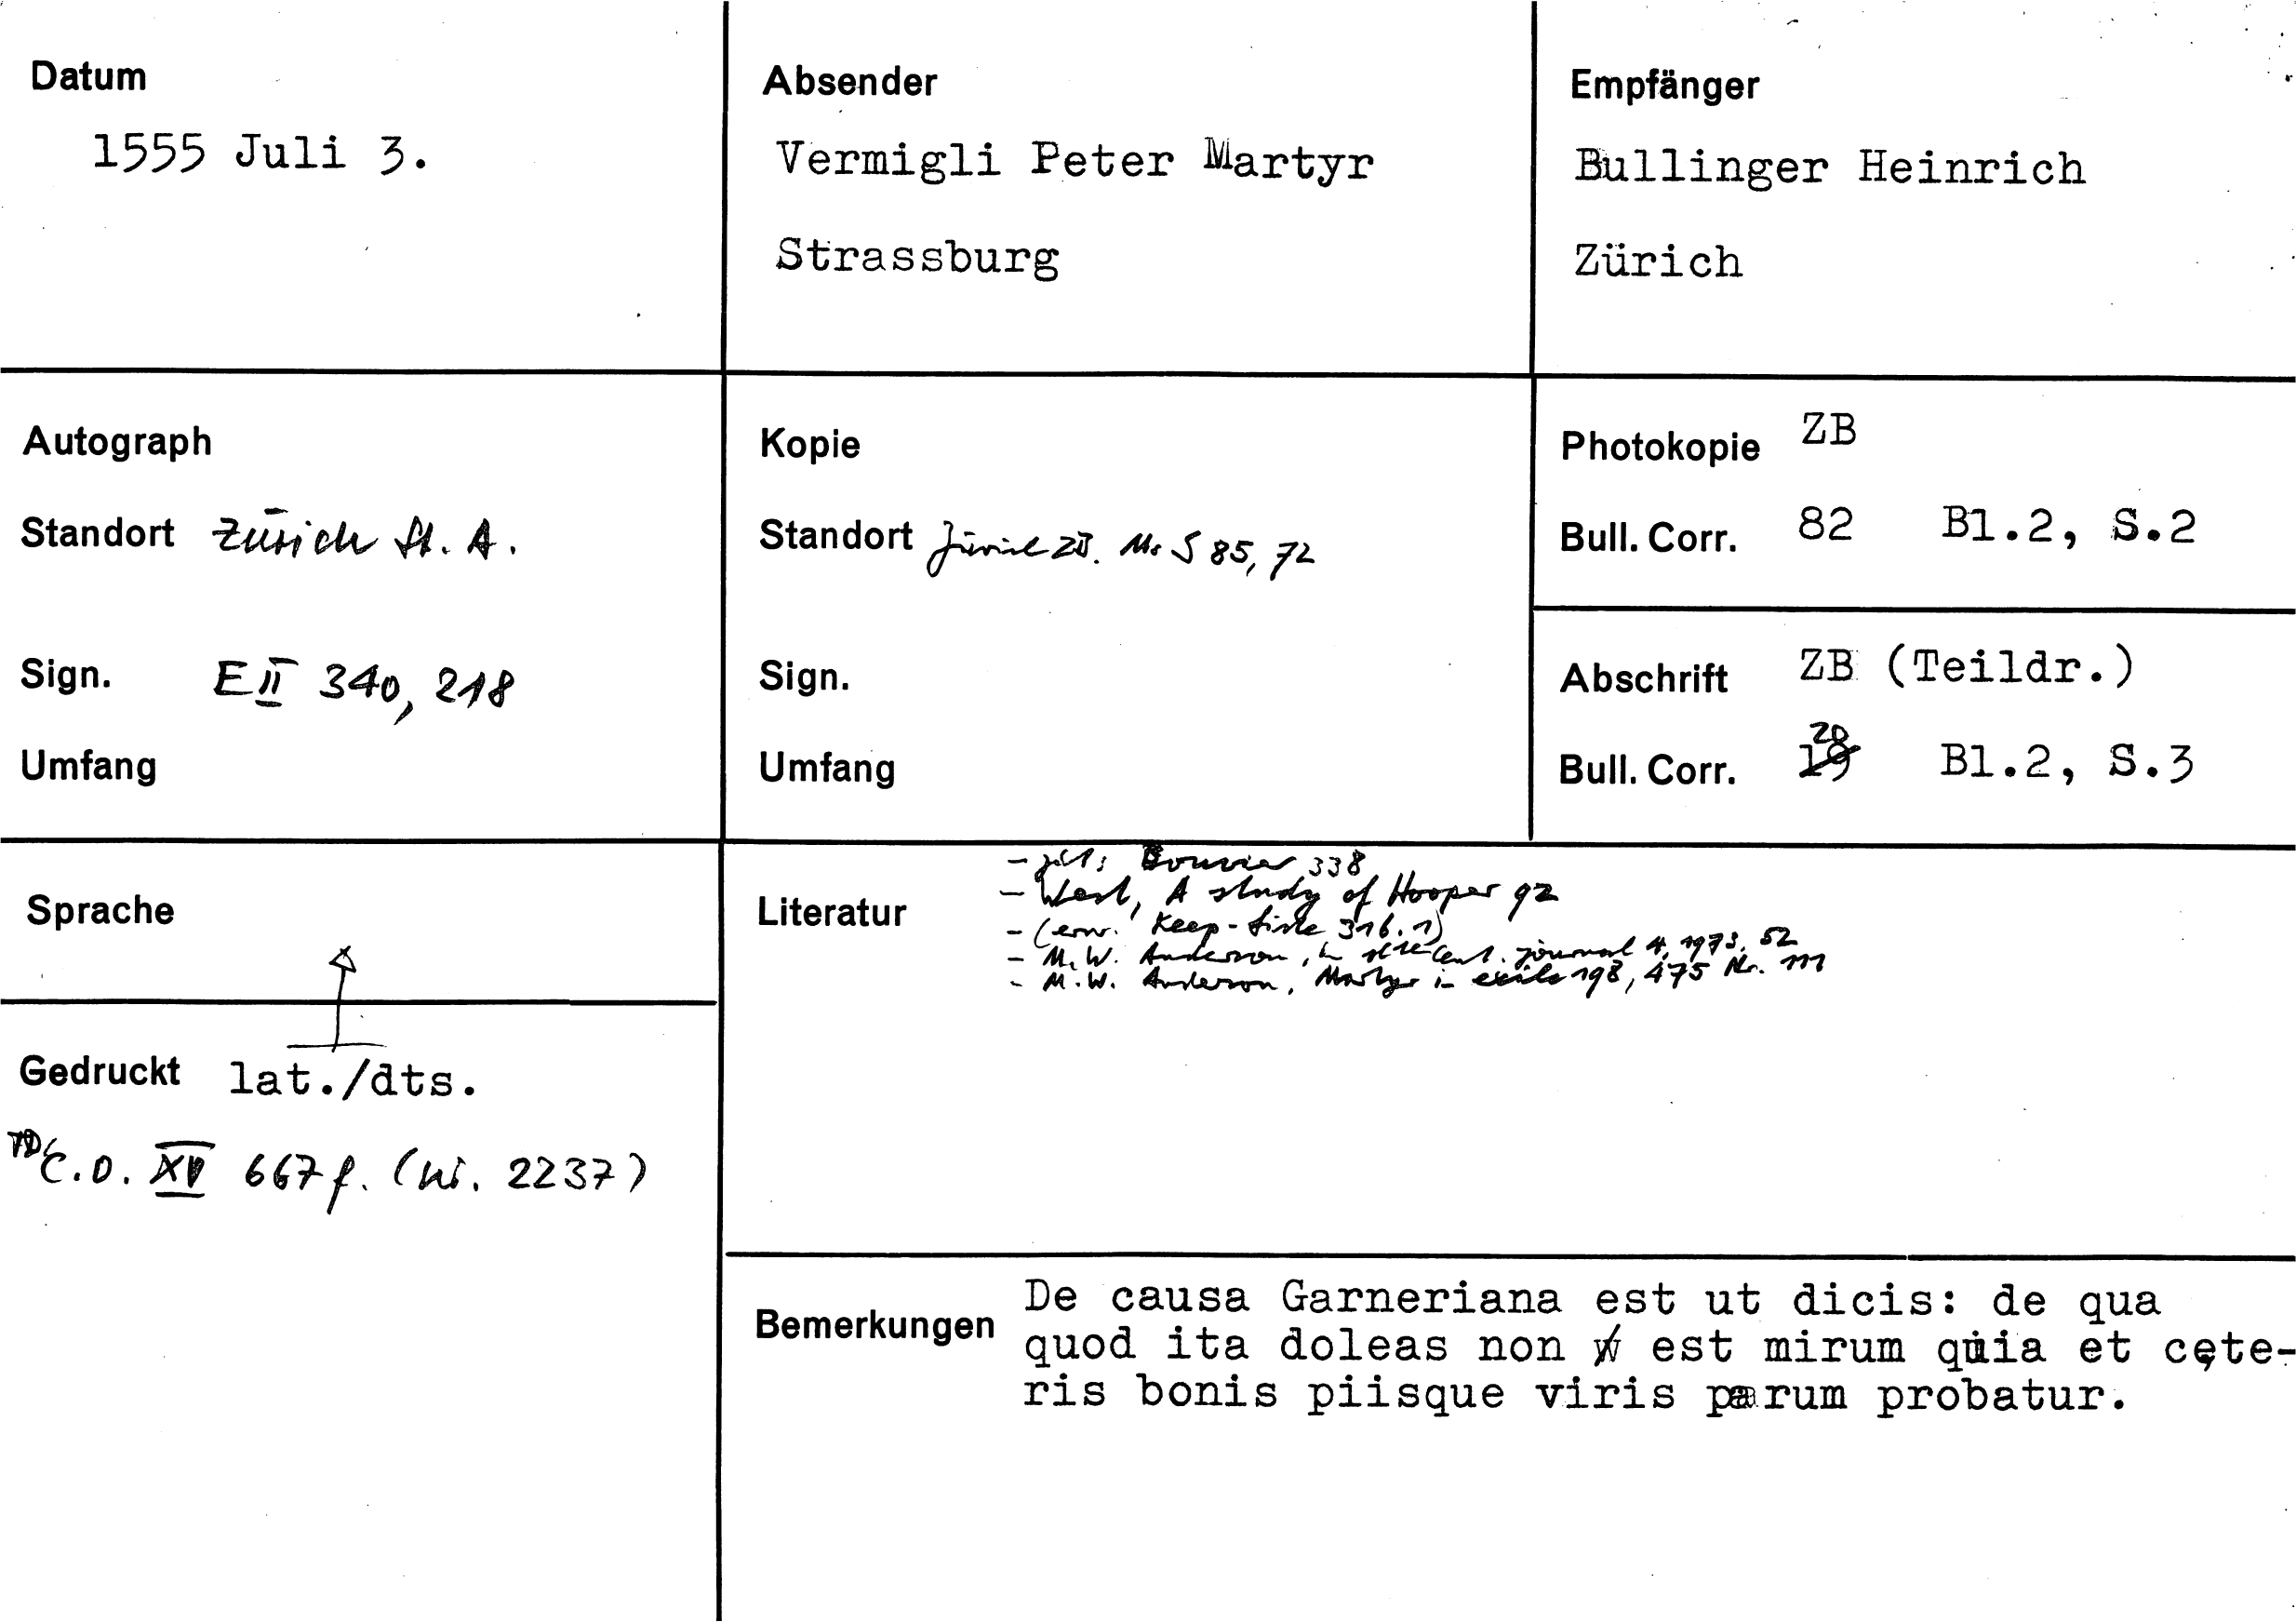 Datum
1555 Juli 3.
Absender
Vermigli Peter Martyr
Strassburg
Empfänger
Bullinger Heinrich
Zürich
Autograph
Standort Zürich St. A.
Sign. E II 340, 218
Umfang
Kopie
Standort Zürich ZB. Ms S 85, 72
Sign.
Umfang
Photokopie ZB
Bull. Corr. 82 Bl.2, S.2
Abschrift ZB (Teildr.)
Bull. Corr. 19 20 Bl.2, S.3
Sprache
Gedruckt lat./dts.
TD C.O. XV 667 f. (Nr. 2237)
Literatur
- zit: Bouvier 338
- West, A study of Hooper 92
- (erw. Keep - 316.1)
- M.W. Anderson, in 16th cent. journal 4, 1973, 52
- M.W. Anderson, Martyr in exile 198, 475 Nr. 111
Bemerkungen
De causa Garneriana est ut dicis: de qua
quod ita doleas non est mirum quia et cęte-
ris bonis piisque viris parum probatur.